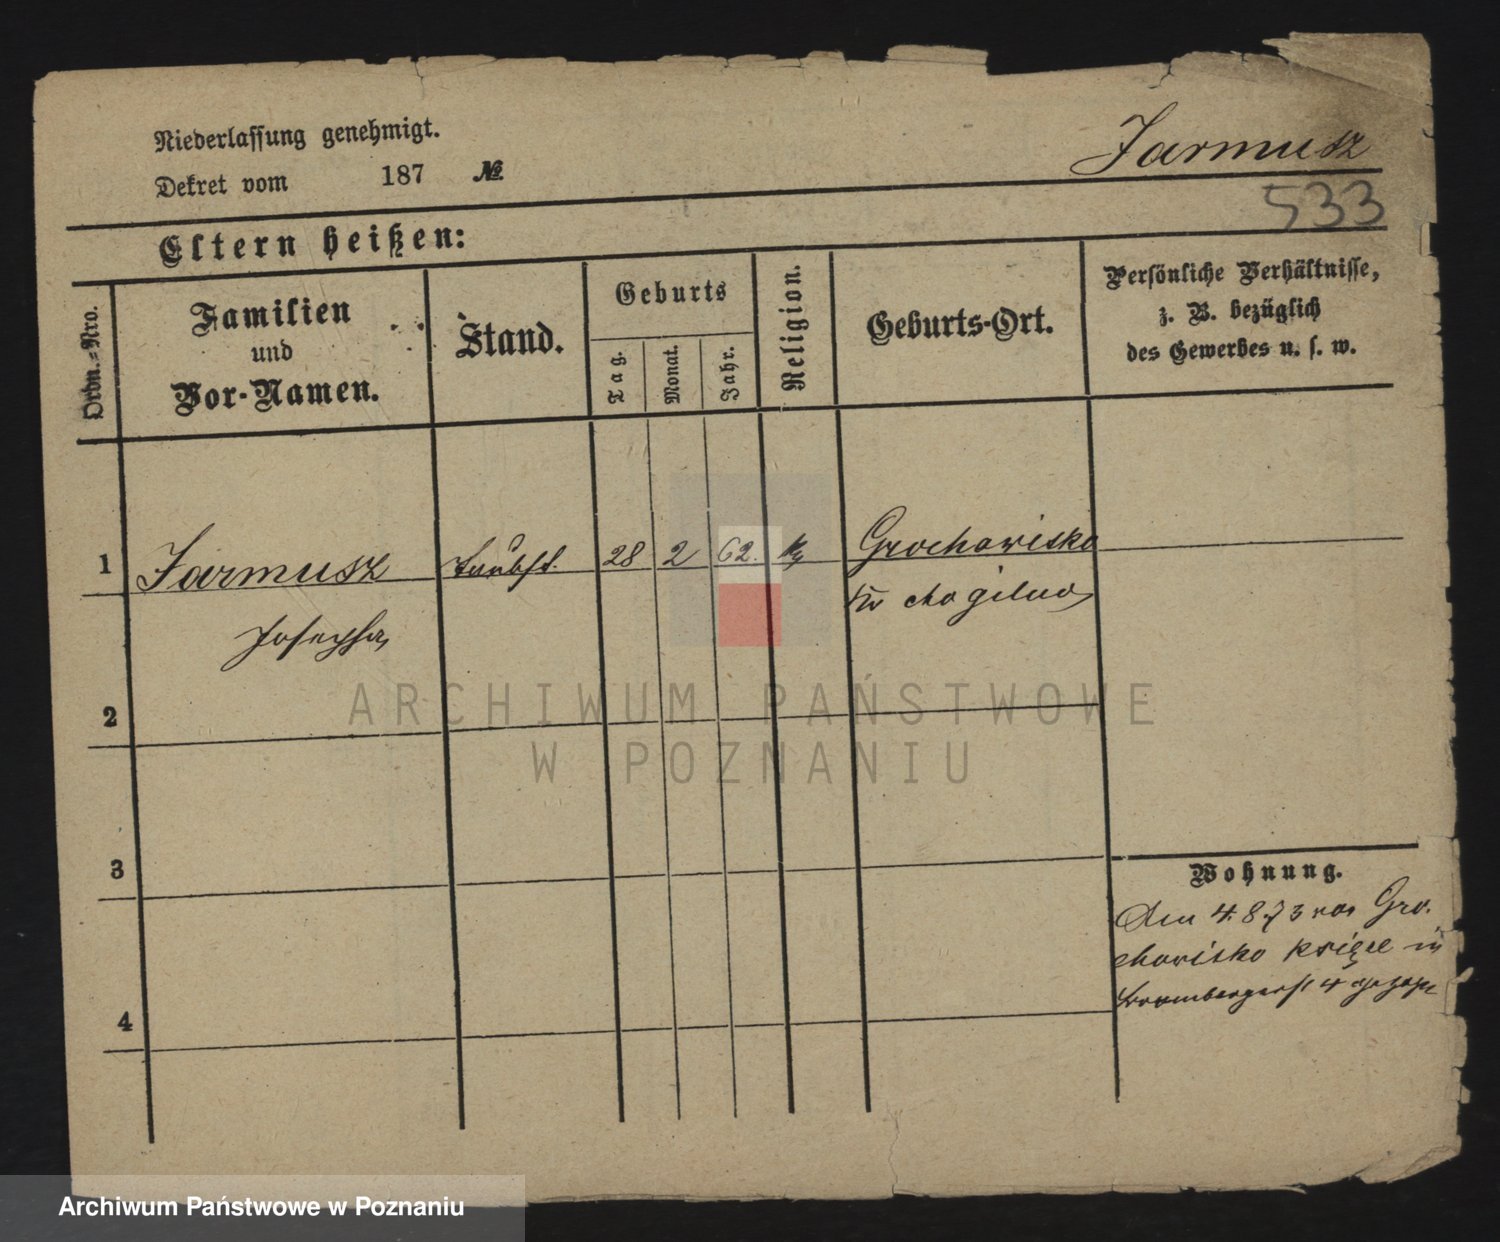 Niederlassung genehmigt.
Jarmusz
Dekret vom 187 №
533
Eltern heißen:
Ordn.=Nro.
Familien
und
Vor-Namen.
Stand.
Geburts
Tag.
Monat.
Jahr.
Religion.
Geburts-Ort.
Persönliche Verhältnisse,
z. B. bezüglich
des Gewerbes u. s. w.
1 Jarmusz 28 2 62. Grochowiska
Josepha Mogilno
2
3
Wohnung.
Am 4.8.73 von Gro-
chowiska in
Brombergerst 4
4
ARCHIWUM PAŃSTWOWE
W POZNANIU
Archiwum Państwowe w Poznaniu